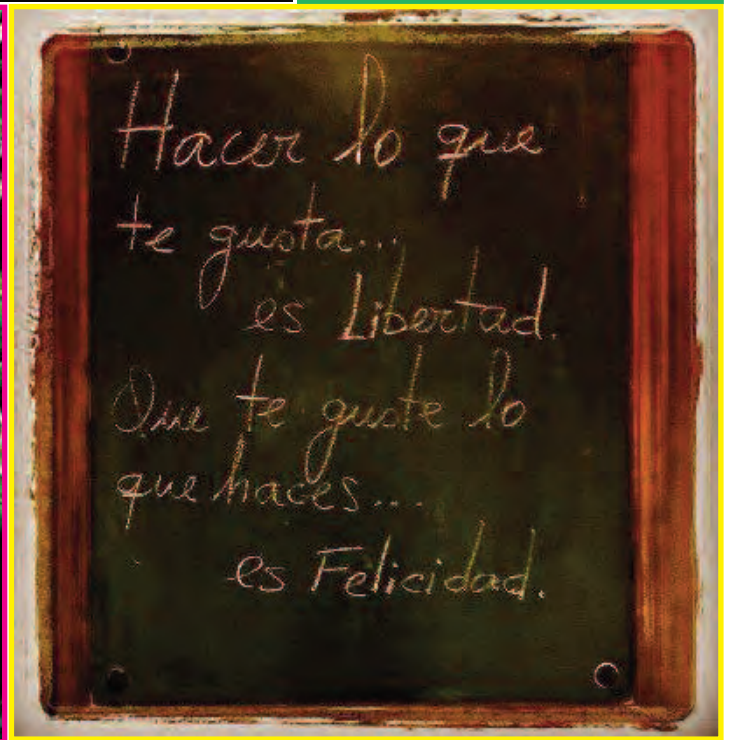 Hacer lo que
te gusta...
es Libertad.
Que te guste lo
que haces....
es Felicidad.